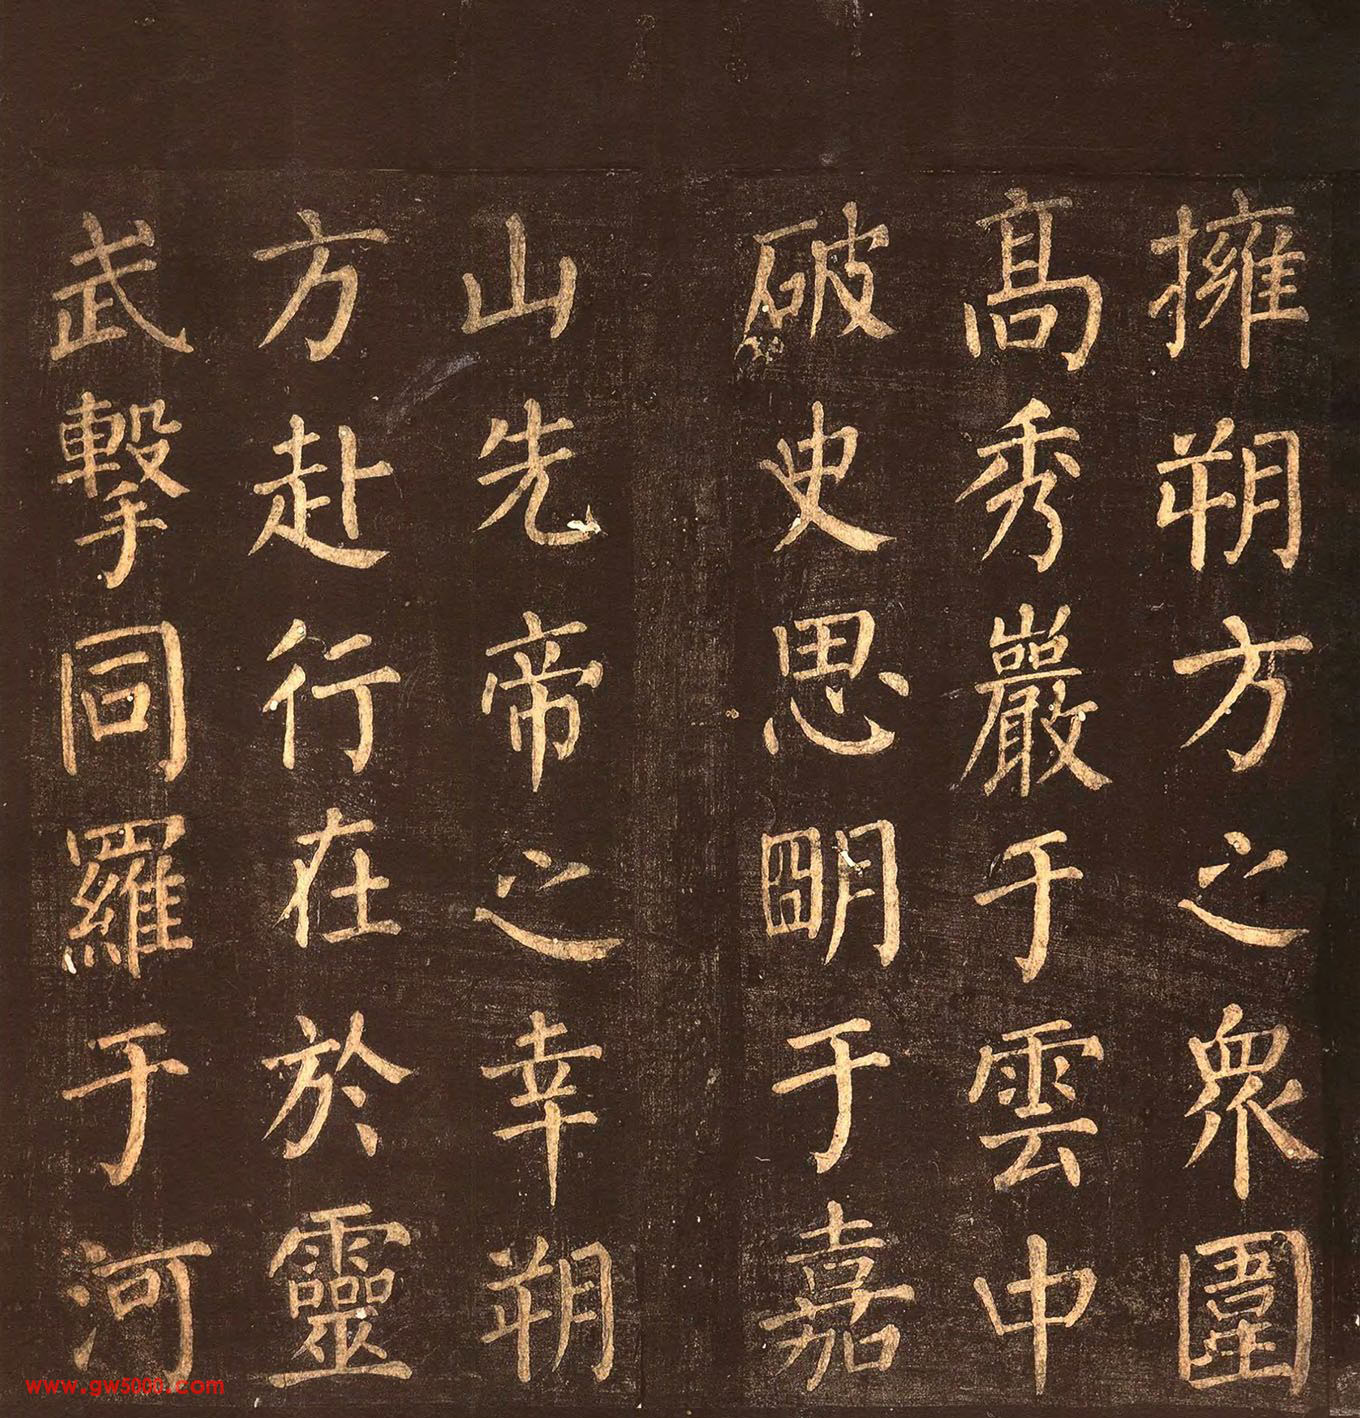 擁朔方之衆圍
高秀巖于雲中
破史思明于嘉
山先帝之幸朔
方赴行在於靈
武擊同羅于河
www.gw5000.com